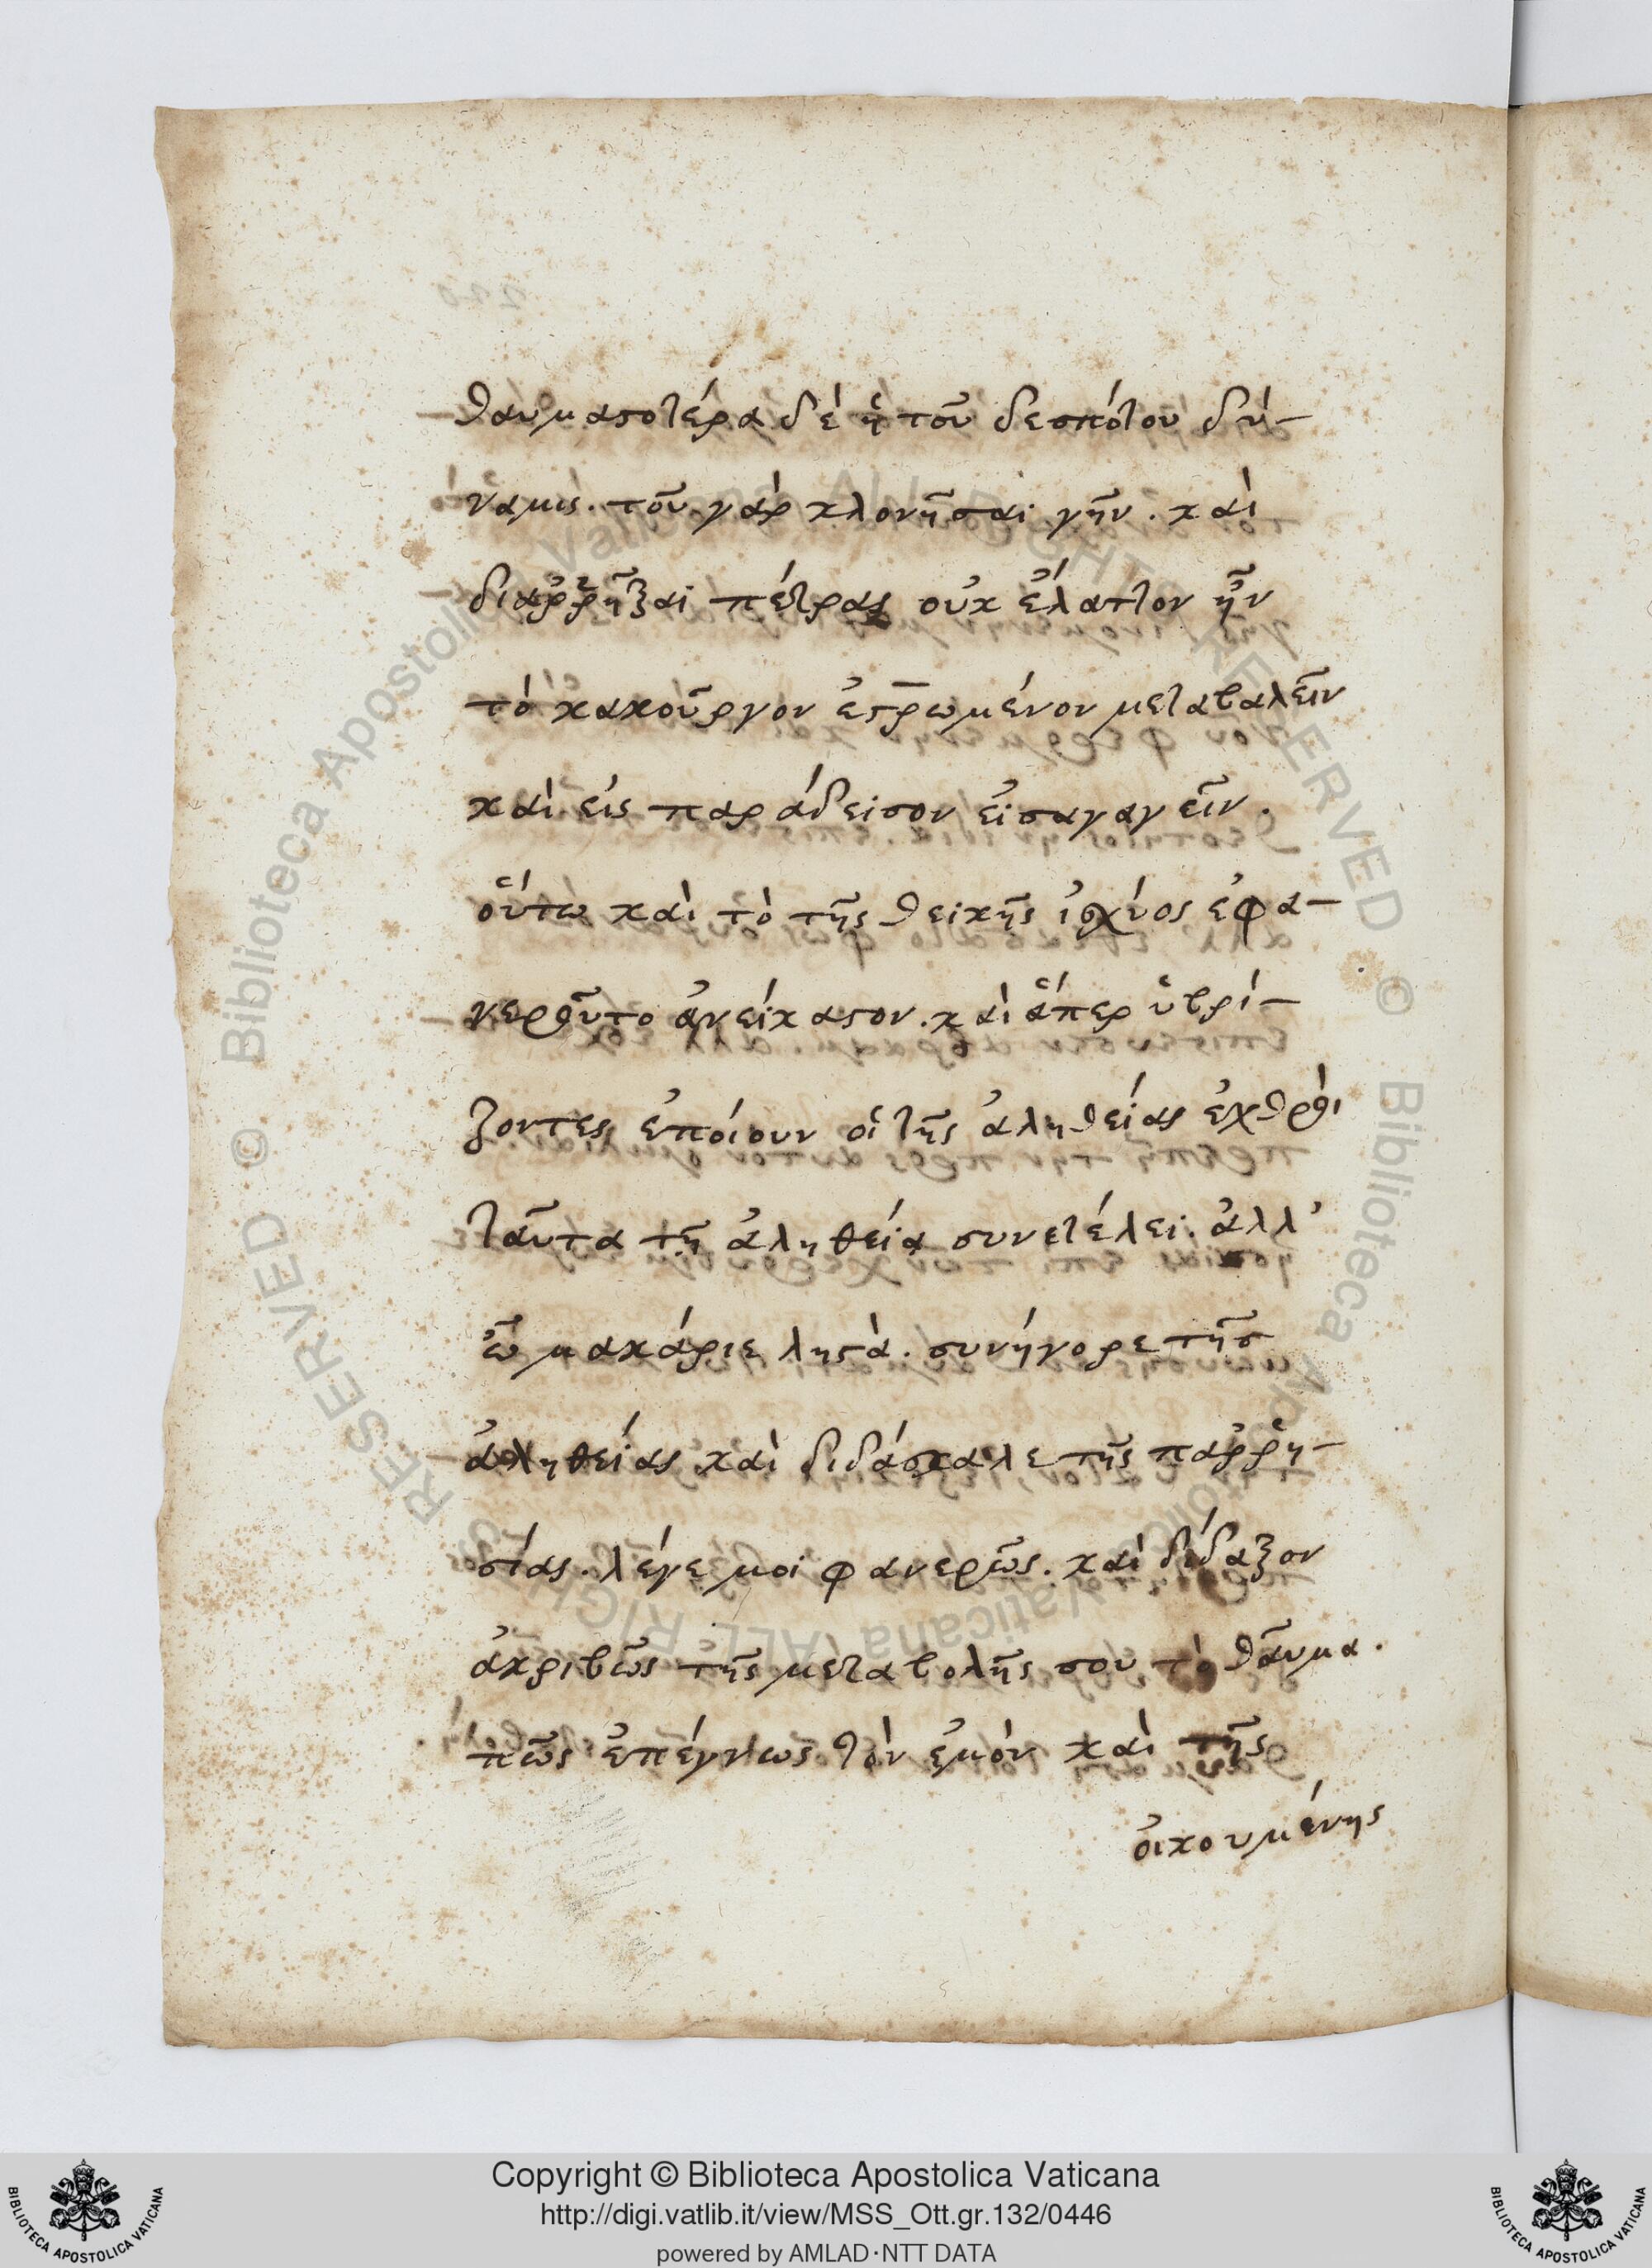 θαυμαστοτέρα δὲ ἡ τοῦ δεσπότου δύ-
ναμις. τοῦ γὰρ κλονῆσαι γῆν. καὶ
διαῤῥῆξαι πέτρας οὐκ ἔλαττον ἦν
τὸ κακοῦργον ἐσ̅ρωμένον μεταβαλεῖν
καὶ εἰς παράδεισον εἰσαγαγεῖν.
οὕτω καὶ τὸ τῆς θεικῆς ἰσχύος ἐφα-
νεροῦτο ἀνείκαστον. καὶ ἅπερ ὑβρί-
ζοντες ἐποίουν οἱ τῆς ἀληθείας ἐχθροὶ
ταῦτα τῇ ἀληθείᾳ συνετέλει. ἀλλ'
ὦ μακάριε ληστὰ. συνήγορε τῆς
ἀληθείας καὶ διδάσκαλε τῆς παῤῥη-
σίας. λέγε μοι φανερῶς. καὶ δίδαξον
ἀκριβῶς τῆς μεταβολῆς σου τὸ θαῦμα.
πῶς ἐπέγνως τὸν ἐμὸν καὶ τῆς
οἰκουμένης
Biblioteca Apostolica Vaticana ALL RIGHTS RESERVED ©
Biblioteca Apostolica Vaticana ALL RIGHTS RESERVED ©
Copyright © Biblioteca Apostolica Vaticana
http://digi.vatlib.it/view/MSS_Ott.gr.132/0446
powered by AMLAD·NTT DATA
BIBLIOTECA APOSTOLICA VATICANA
BIBLIOTECA APOSTOLICA VATICANA